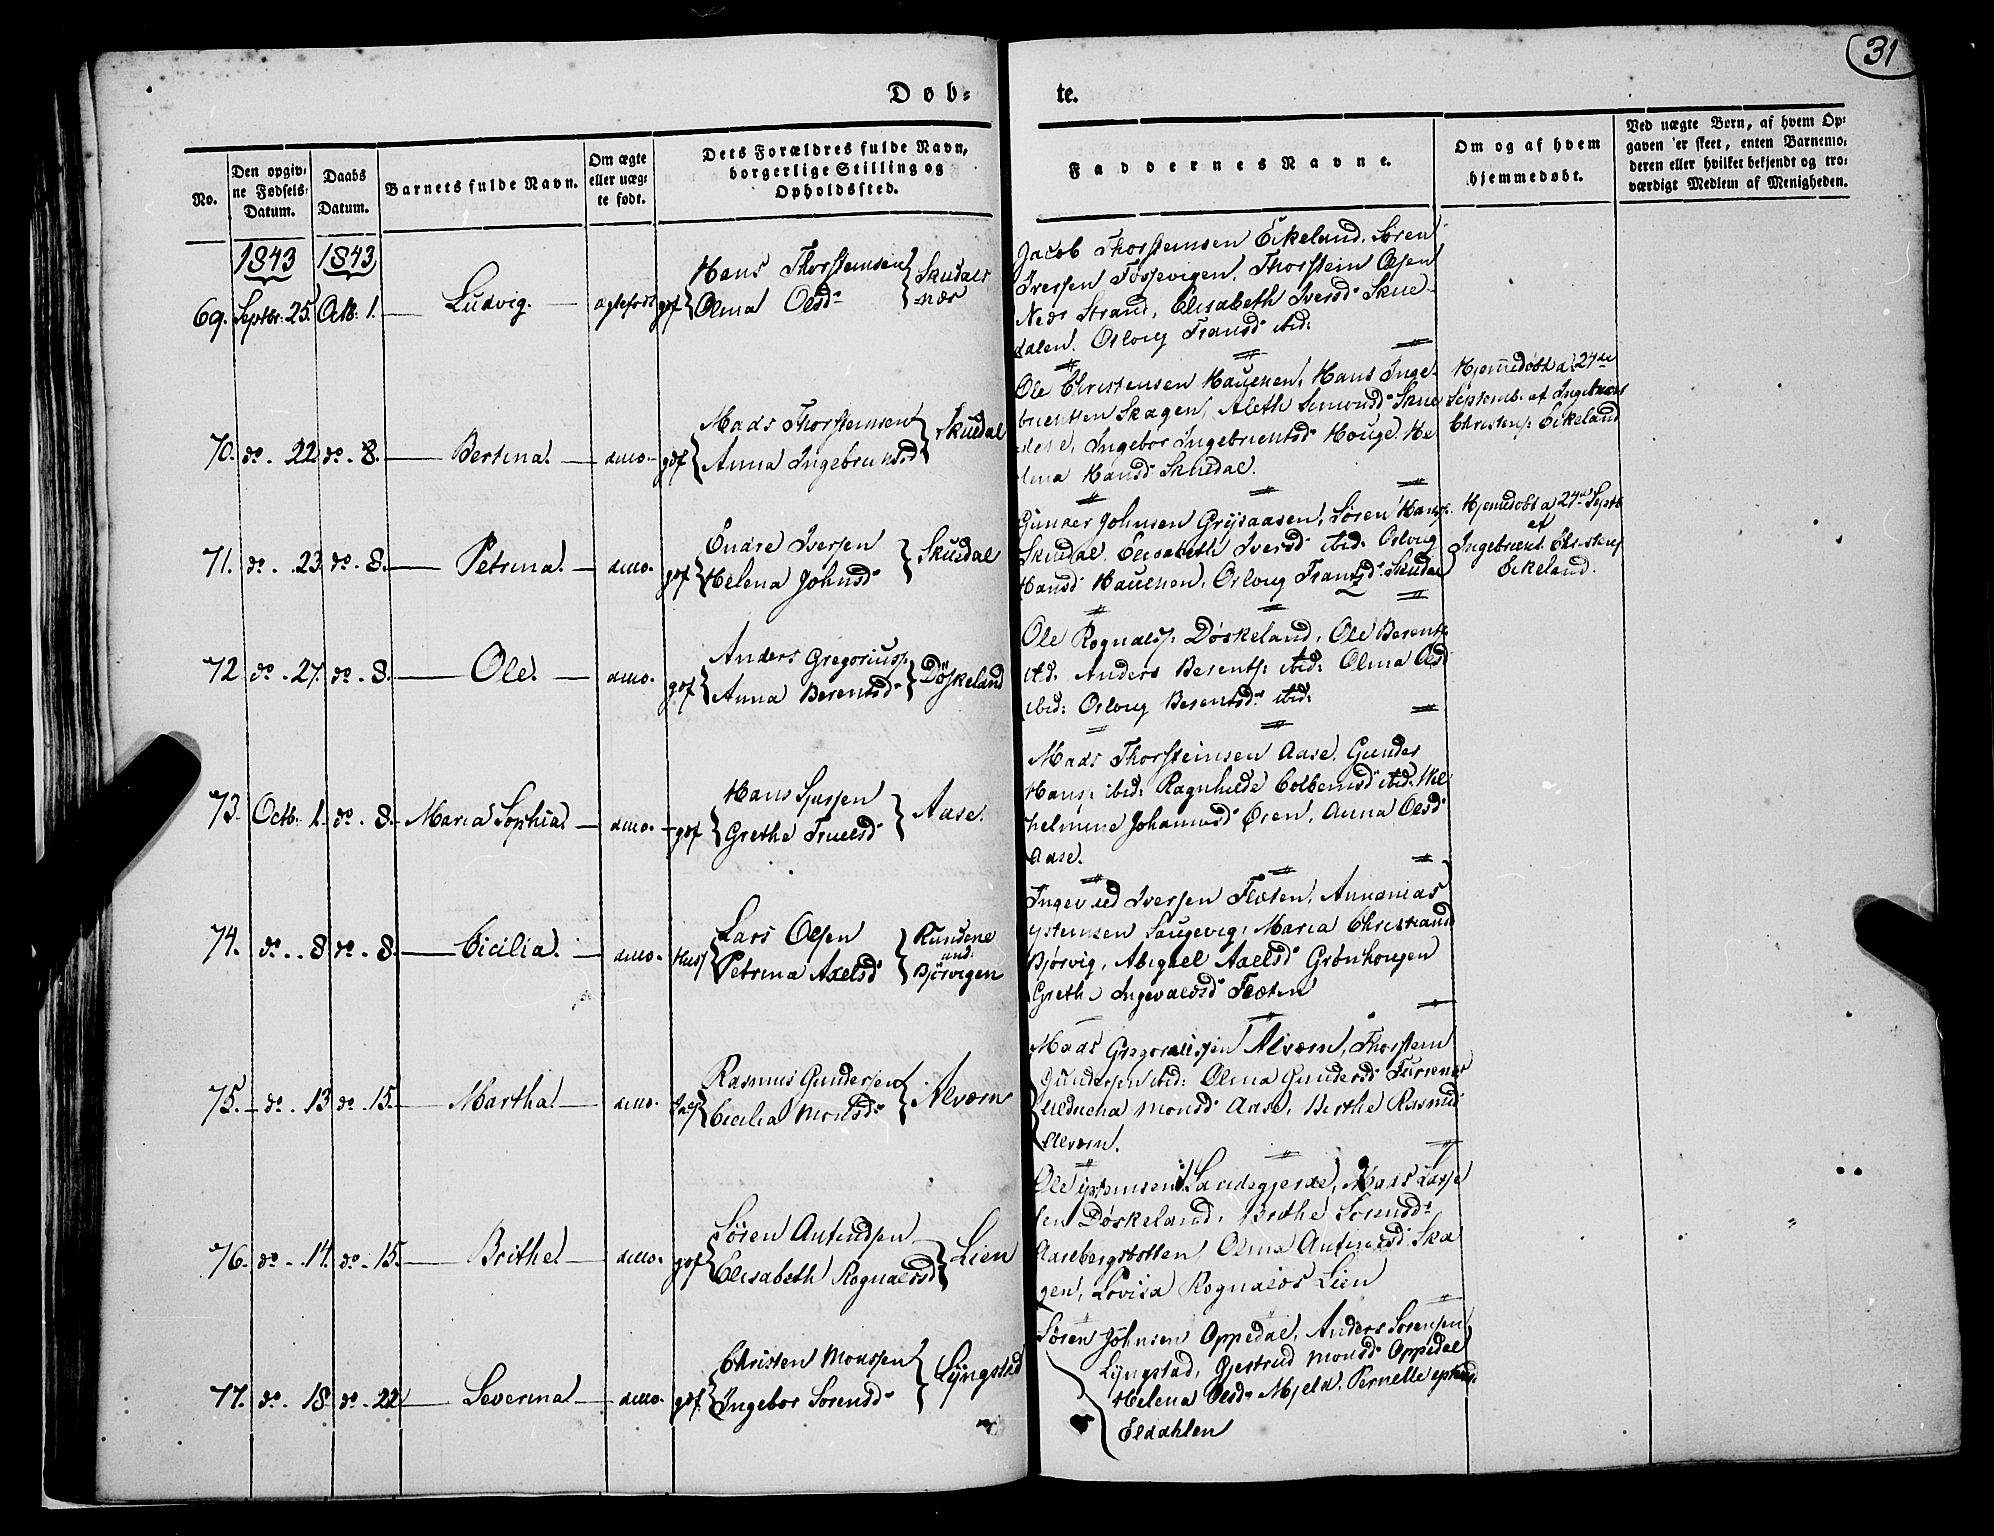 31
Døb-
te.
No.
Den opgiv-
ne Fødsels-
Datum.
Daabs
Datum.
Barnets fulde Navn.
Om ægte
eller uæg-
te født.
Dets Forældres fulde Navn,
borgerlige Stilling og
Opholdssted.
Faddernes Navne.
Om og af hvem
hjemmedøbt.
Ved uægte Børn, af hvem Op-
gaven er skeet, enten Barnemo-
deren eller hvilket bekjendt og tro-
værdigt Medlem af Menigheden.
1843 1843
69. Septbr. 25. Octb. 1. Ludvig. ægtefødt
gdf Hans Thorsteinsen
Olina Olsd.
Jacob Thorsteinsen Eikeland, Søren
Iversen Tossevigen, Thorstein Olsen
Nedr Strand, Elisabeth Iversd. Skue-
dalen. Orloug Fransd. ibid:
70. do. 22 do. 8. Bertina. ditto.
gdf Mads Thorsteinsen
Anna Ingebrigtsd
Skuedal
Ole Christensen Haueken, Hans Inge-
brigtsen Skagen, Aleth Simonsd. Skue
Ingebor Ingebrigtsd. Houge. He
lina Hansd. Skuedal.
Hjemmedøbt d. 24de
Septemb. af Ingebrigt
Christens. Eikeland
71. do. 23 do. 8. Petrina. ditto.
gdf Endre Iversen
Helena Johnsd.
Skuedal
Gunder Johnsen Grytaasen, Søren Hans.
Skuedal. Elisabeth Iversd. ibid. Orloug
Hansd. Haueken, Orloug Frantsd. Skuedal
Hjemmedøbt d. 24de Septb.
af
Ingebrigt Christens
Eikeland.
72 do. 27. do. 8. Ole. ditto.
gdf Anders Gregorius.
Anna Berentsd.
Döskeland
Ole Rognals. Döskeland, Ole Berents.
ibd. Anders Berents. ibid: Olina Olsd
ibid: Orloug Berentsd. ibid:
73. Octb. 1. do. 8. Maria Sophia. ditto.
gdf Hans Sjursen
Grethe Truelsd.
Aase.
Mads Thorsteinsen Aase, Gunder
Hans. ibid: Ragnhilde Colbeinsd. ibid: Wil-
helmine Johannesd. Øren, Anna Olsd.
Aase.
74. do. 8. do. 8. Cicilia. ditto.
Huus Lars Olsen
Petrina Axelsd.
Rundene
und:
Bjørvigen
Ingevald Iversen Flöten, Annanias
ystensen Saugevig, Maria Christiansd
Bjørvig, Abigael Axelsd. Grønhougen
Grethe Ingevaldsd. Flöten
75. do. 13 do. 15. Martha. ditto.
Rasmus Gundersen
Cicilia Monsd.
Alværn
Mads Gregoriussen Alværn, Thorstein
Gundersen ibid: Olina Gundersd. Furenæs
Monsd. Aase, Berthe Rasmusd
Alværn.
76. do. 14. do. 15. Brithe. ditto.
gdf Søren Antensen
Elisabeth Rognalsd
Lien
Ole Landegjerde, Mads Lasse
sen Döskeland, Brithe Sørensd.
Aasebergstotten Olina Ska
gen, Lovisa Rognalds Lien
77. do. 18 do. 22 Severina. ditto.
gdf. Christen Monssen
Ingebor Sørensd.
Lÿngstad
Søren Johnsen Oppedal, Anders Sørensen
Lÿngstad, Gjertrud Monsd. Oppedal
Helena Olsd. Mjeld, Pernelle
Eldahlen